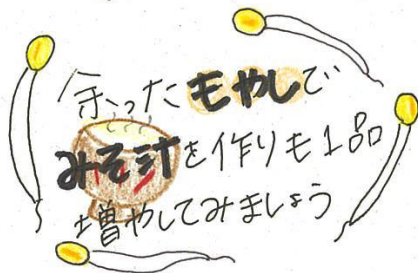 余ったもやしで
みそ汁を作りも1品
増やしてみましょう